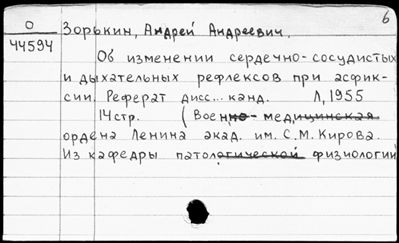 6
О
44594
Зорькин, Андрей Андреевич.
Об изменении сердечно-сосудистых
и дыхательных рефлексов при асфик-
сии. Реферат дисс... канд. Л, 1955
14 стр. (Военно-медицинская
ордена Ленина акад. им. С.М. Кирова.
Из кафедры патологической физиологии